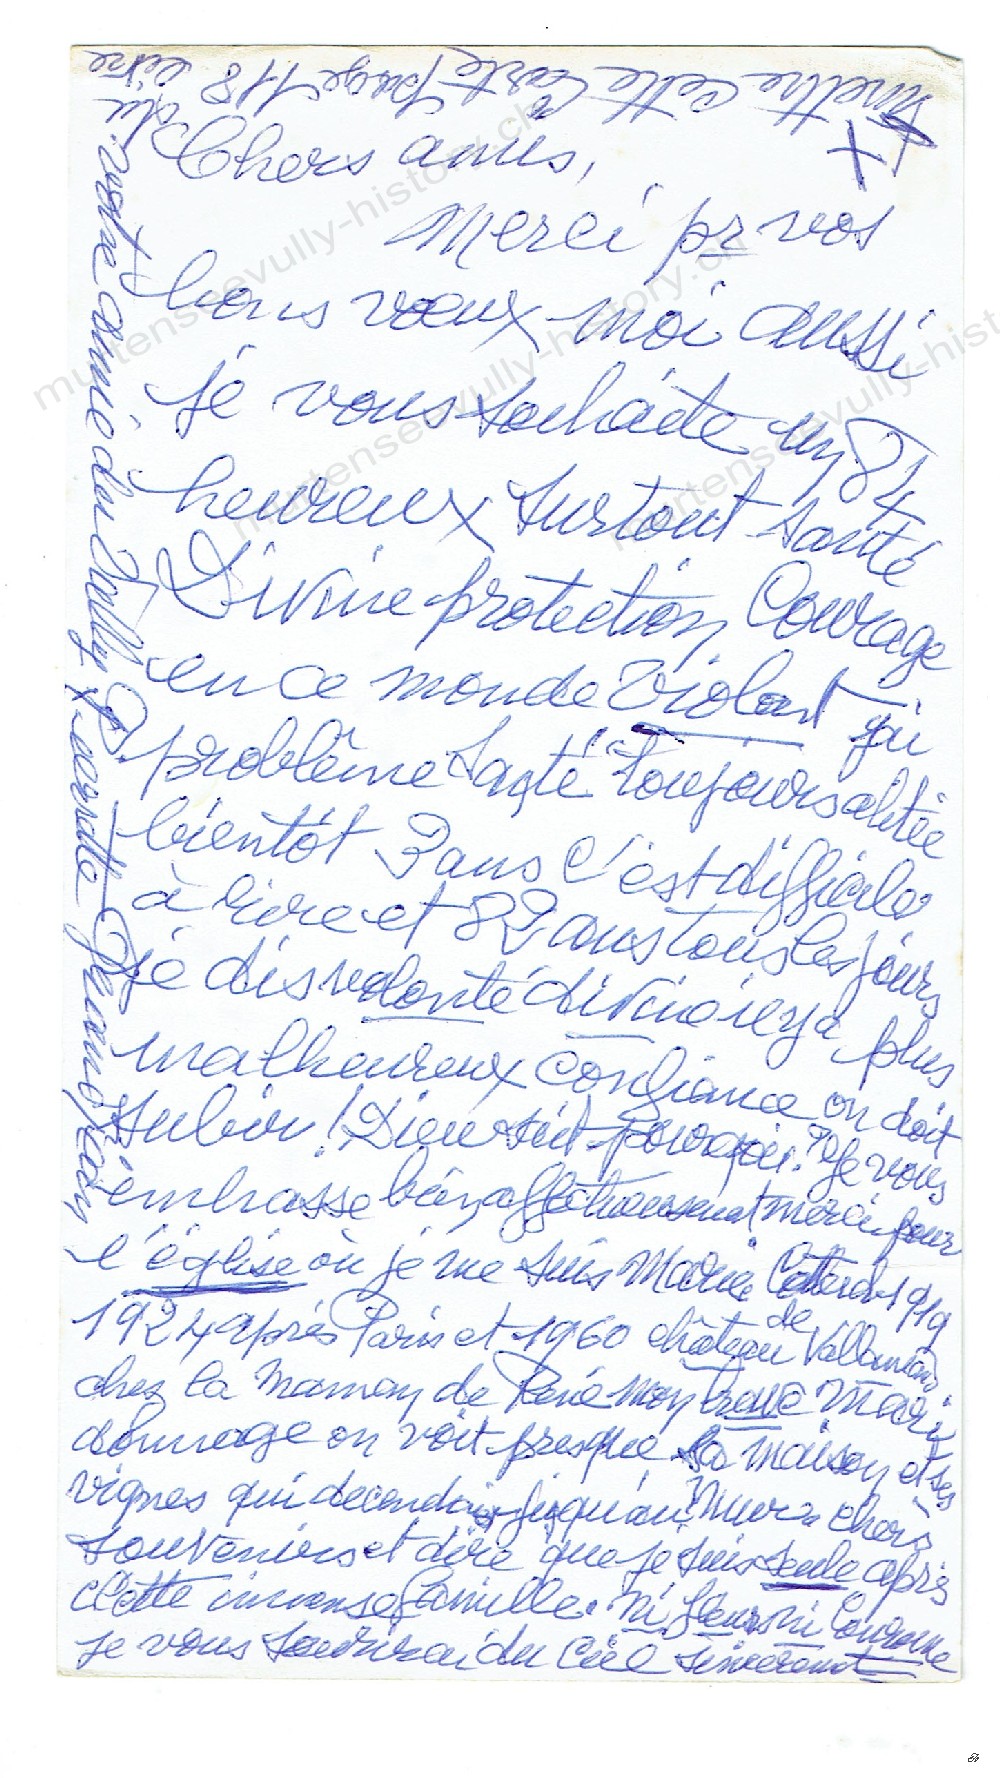 mettre cette carte page 118 livre
Chers amis,
Merci pr vos
bons vœux moi aussi
je vous souhaite un 84
heureux surtout santé
Divine protection Courage
en ce monde violent qu
problême santé toujours alitée
bientôt 3 ans c'est difficile
à vivre et 82 ans tous les jours
je dis volonté divine il y a plus
malheureux confiance on doit
subir! Dieu sait pourquoi? Je vous
embrasse bien affectueusement merci pour
l'église où je me suis Mariée 1919
1924 après Paris et 1960 château de Vallamand
chez la Maman de René mon brave Mari
dommage on voit presque la maison et ses
vignes qui décendais jusqu'au Murs chers
souvenirs et dire que je suis seule après
Cette immense famille. Ni fleurs ni Couronne
je vous sourirai du Ciel sincèrement
votre amie du Vully
murtenseevully-history.ch
murtenseevully-history.ch
murtenseevully-history.ch